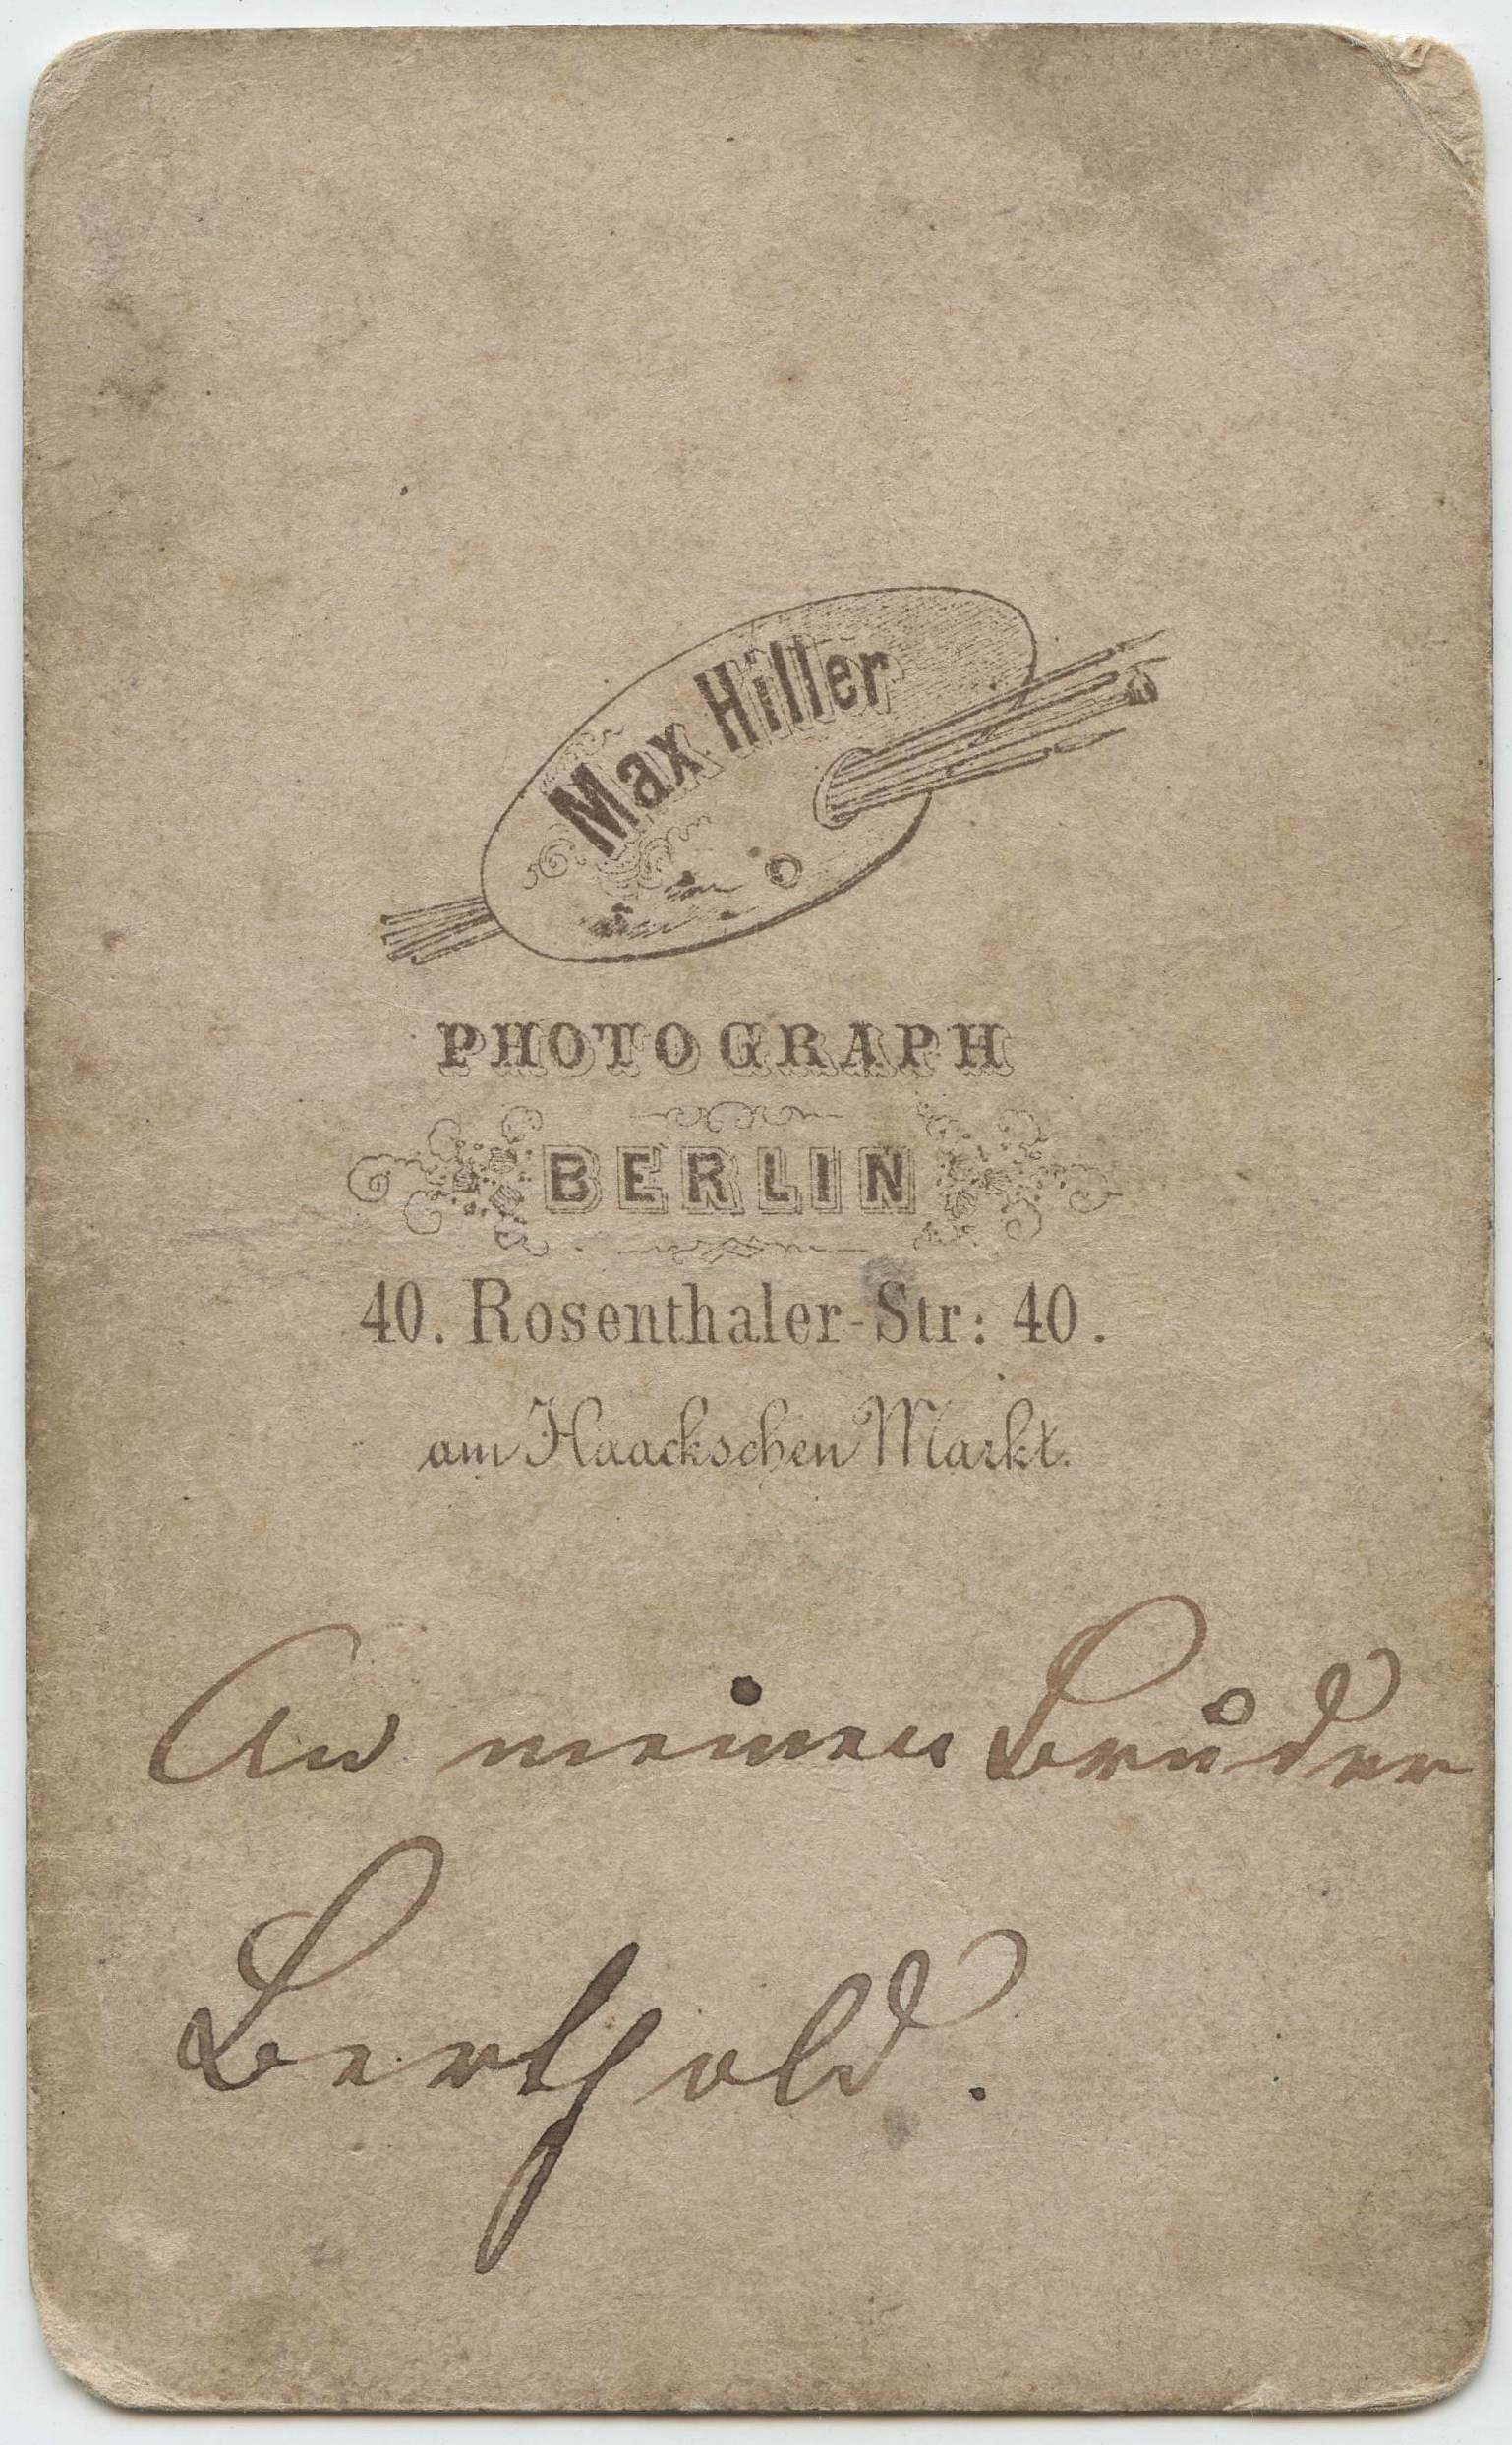 Max Hiller
PHOTOGRAPH
BERLIN
40. Rosenthaler-Str: 40.
am Haackschen Markt.
An meinen Bruder
Berthold.